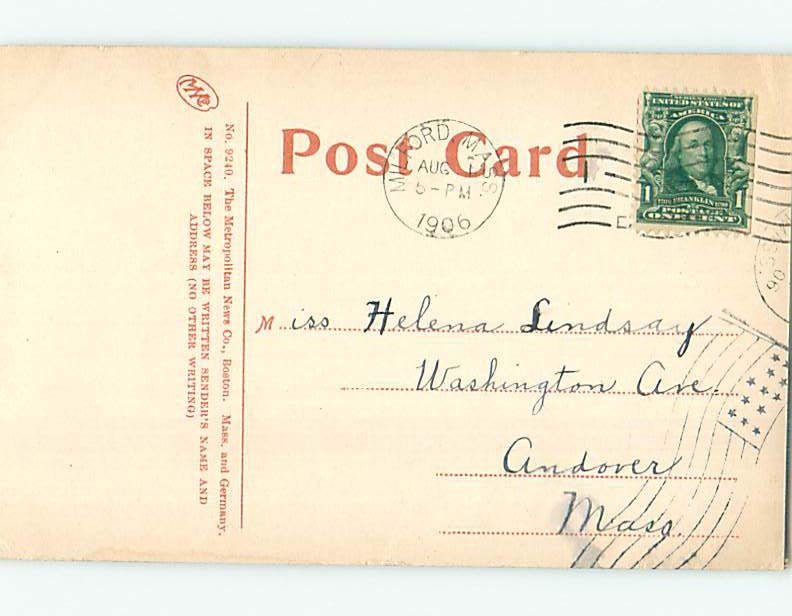 No. 9240. The Metropolitan News Co., Boston. Mass. and Germany.
IN SPACE BELOW MAY BE WRITTEN SENDER'S NAME AND
ADDRESS (NO OTHER WRITING)
Post Card
MILFORD MASS
AUG
5-PM
1906
SERIES 1902
UNITED STATES OF
AMERICA
1 1
FRANKLIN
POSTAGE
ONE CENT
06
Miss Helena Lindsay
Washington Ave.
Andover
Mass.